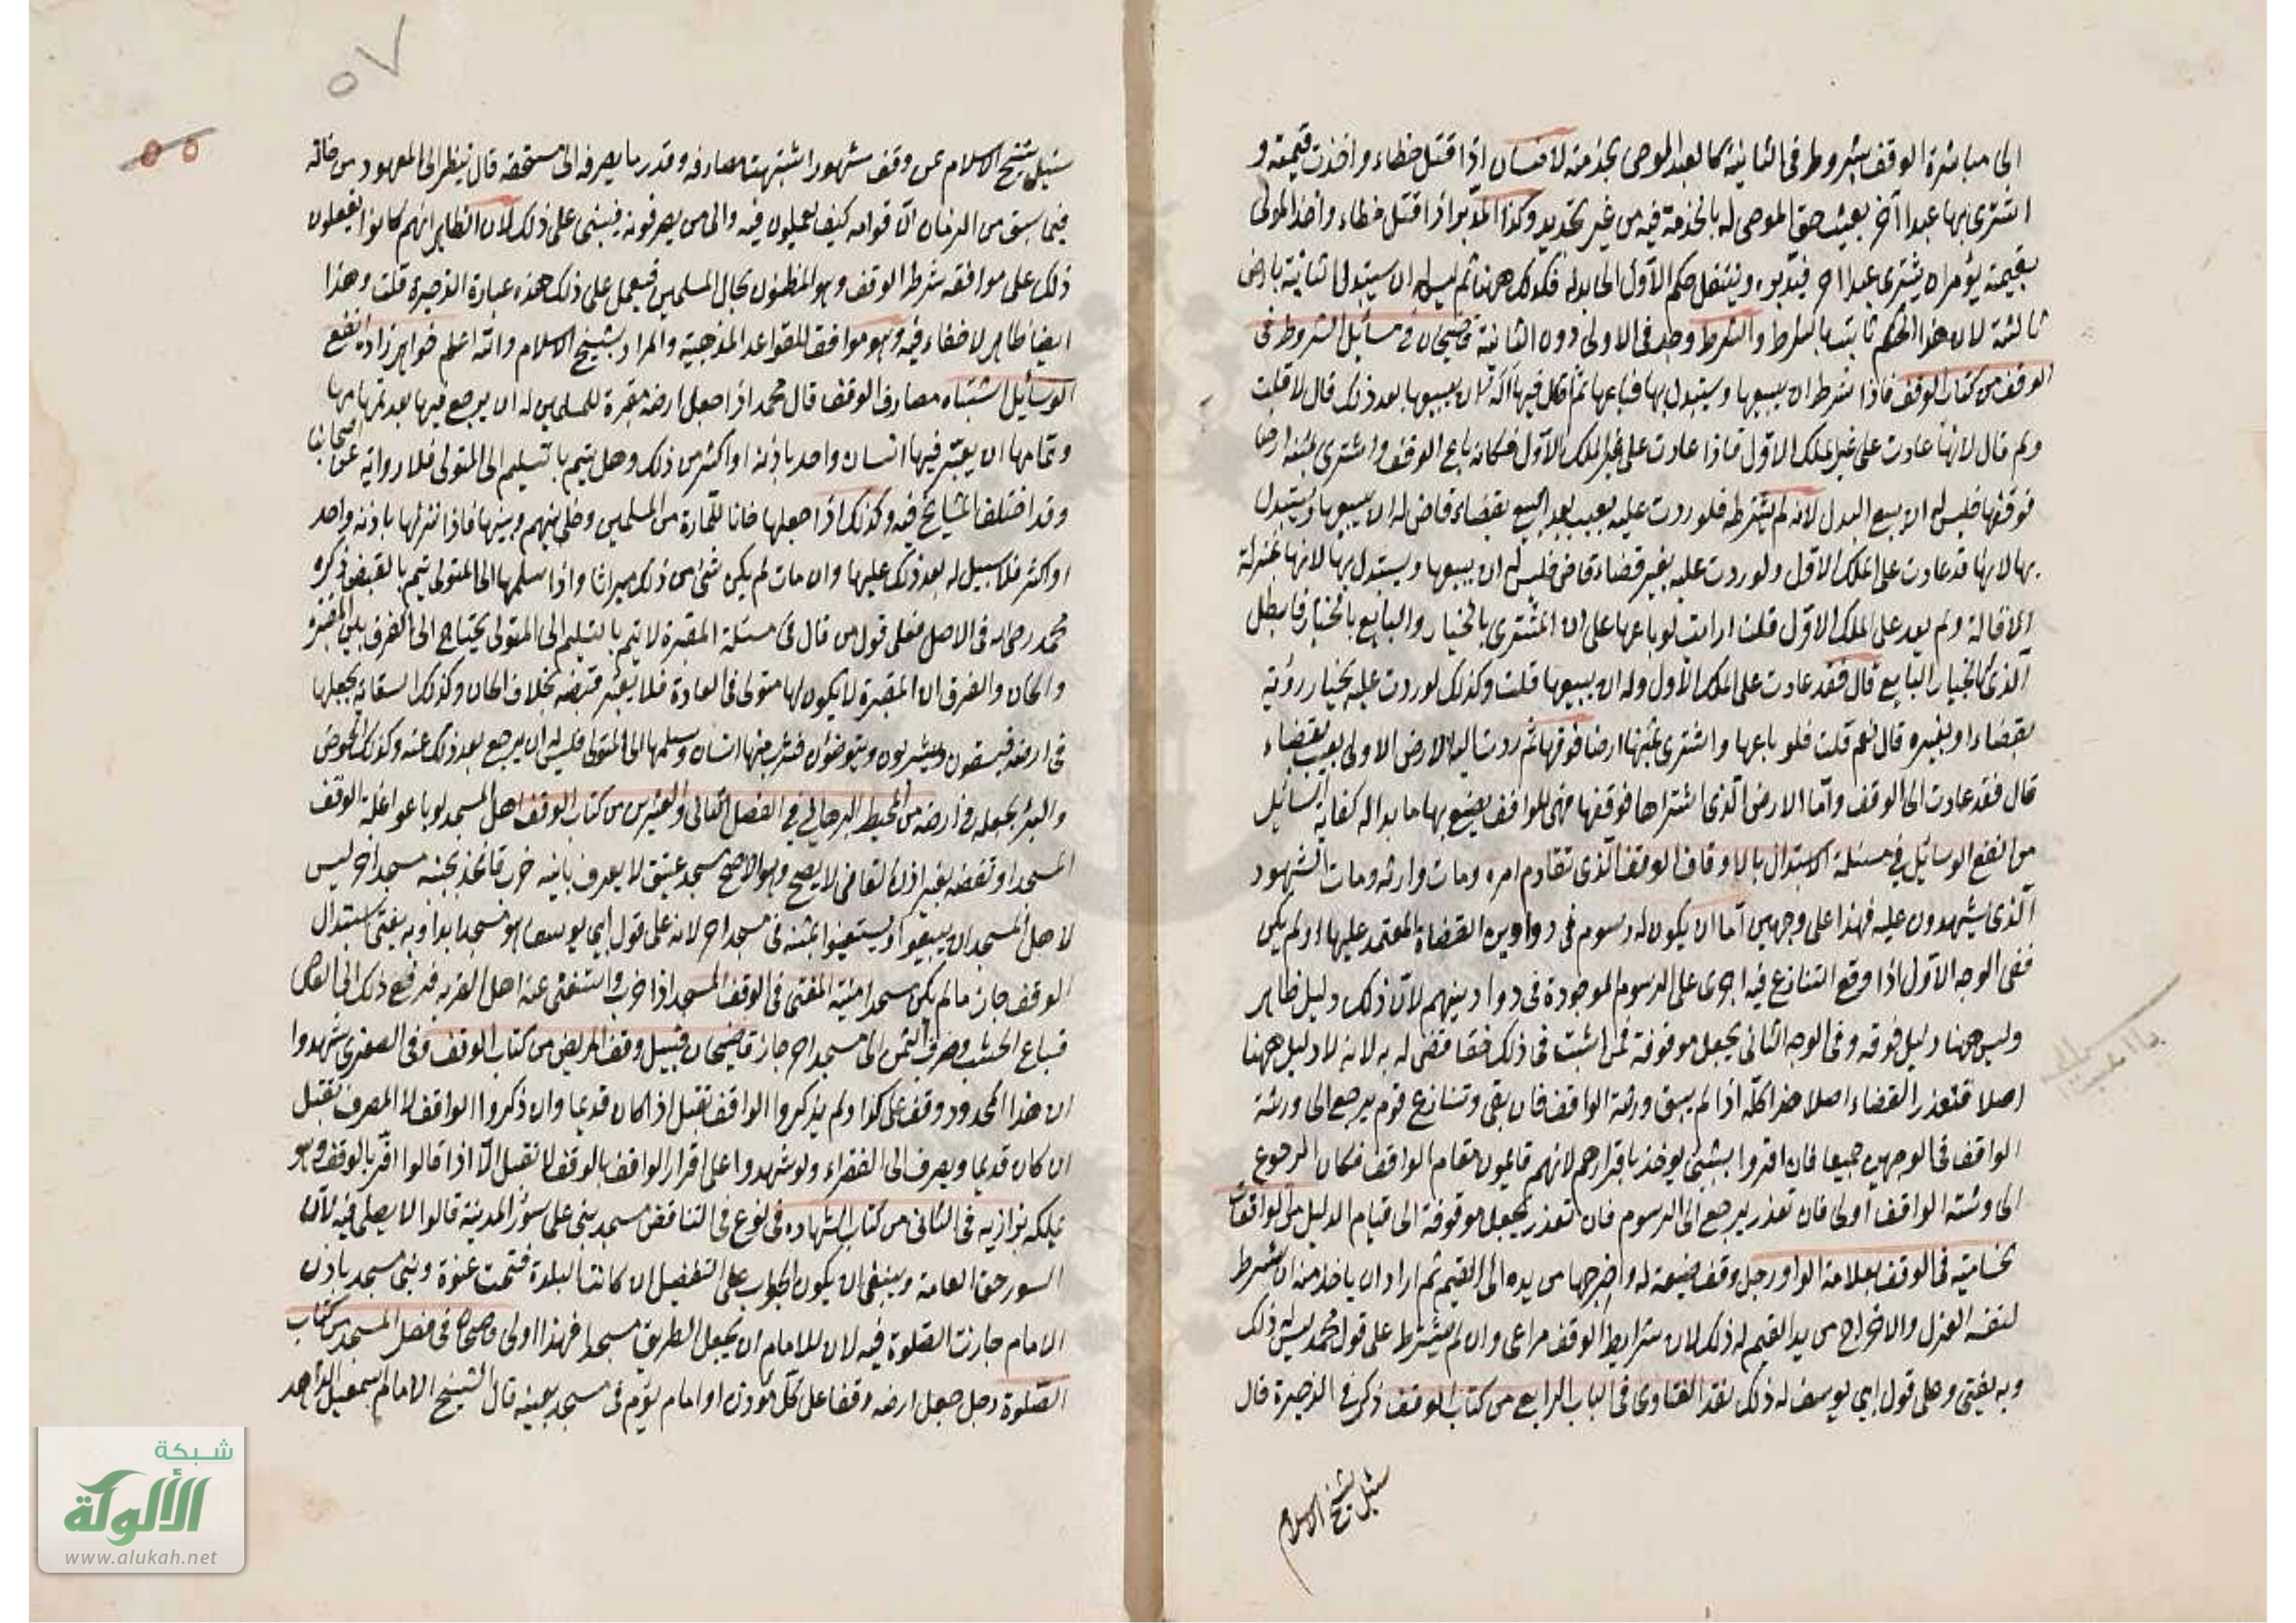 الى مباشرة الوقف بشروطه في الثانية كالعبد الموصى بخدمته لانسان اذا قتل خطاء واخذت قيمته و
اشترى بها عبدا آخر يعيت حق الموصى له بالخدمة فيه من غير تجديد وكذا المدبر اذا قتل خطاء واخذ المولى
بقيمته يؤمر ان يشترى عبدا اخر فيدبره وينتقل حكم الاول الى بدله فكذلك ههنا ثم ليس له ان يستبدل الثانية بارض
ثالثة لان هذا الحكم ثابت بالشرط والشرط وجد في الاولى دون الثانية قاضيخان في مسائل الشروط في
الوقف من كتاب الوقف فاذا شرط ان يبيعها ويستبدل بها فباعها ثم اقال فيها أله ان يبيعها بعد ذلك قال لا قلت
ولم قال لانها عادت على غير الملك الاول فاذا عادت على غير الملك الاول فكانه باع الوقف واشترى بثمنه ارضا
فوقفها فليس له الا بيع البدل لانه لم يشترطه فلو ردت عليه بعيب بعد البيع بقضاء قاض له ان يبيعها ويستبدل
بها لانها قد عادت على الملك الاول ولو ردت عليه بغير قضاء قاض فليس له ان يبيعها ويستبدل بها لانها بمنزلة
الاقالة ولم يعد على الملك الاول قلت ارايت لو باعها على ان المشترى بالخيار والبايع بالخيار فابطل
الذي له الخيار البايع قال فقد عادت على الملك الاول وله ان يبيعها قلت وكذلك لو ردت عليه بخيار رؤية
بقضاء او بغيره قال نعم قلت فلو باعها واشترى بثمنها ارضا فوقفها ثم ردت اليه الارض الاولى بعيب بقضاء
قال فقد عادت الى الوقف واما الارض الذي اشتراها فوقفها فهى للواقف يصنع بها ما بدا له كفاية السائل
من انفع الوسائل في مسئلة الاستبدال بالاوقاف الوقف الذى تقادم امره ومات وارثه ومات الشهود
الذي يشهدون عليه فهذا على وجهين اما ان يكون له رسوم في دواوين القضاة المعتمد عليها او لم يكن
ففى الوجه الاول اذا وقع التنازع فيه اجرى على الرسوم الموجودة في دواوينهم لان ذلك دليل ظاهر
وليس ههنا دليل فوقه وفي الوجه الثاني يجعل موقوفة فمن اثبت في ذلك حقا قضى له به لانه لا دليل ههنا
اصلا فتعذر القضاء اصلا هذا كله اذا لم يبق ورثة الواقف فان بقى وتنازع قوم يرجع الى ورثة
الواقف في الوجهين جميعا فان اقروا بشئ يوخذ باقرارهم لانهم قايمون مقام الواقف فكان الرجوع
الى ورثة الواقف اولى فان تعذر يرجع الى الرسوم فان تعذر يجعل موقوفة الى قيام الدليل من الواقعات
حسامية في الوقف بعلامة الواو رجل وقف ضيعة له واخرجها من يده الى القيم ثم اراد ان ياخذ منه ان شرط
لنفسه العزل والاخراج من يد القيم له ذلك لان شرايط الوقف مراعى وان لم يشترط على قول محمد ليس له ذلك
وبه يفتى وعلى قول ابي يوسف له ذلك نقد الفتاوى في الباب الرابع من كتاب الوقف ذكر في الذخيرة قال
سئل شيخ الاسلام
٥٧
٥٥
سئل شيخ الاسلام عن وقف مشهور اشتبهت مصارفه وقدر ما يصرفه الى مستحقه قال ينظر الى المعهود من حاله
فيما سبق من الزمان ان قوامه كيف يعملون فيه والى من يصرفونه فيبنى على ذلك لان الظاهر انهم كانوا يفعلون
ذلك على موافقة شرط الوقف وهو المظنون بحال المسلمين فيعمل على ذلك هذه عبارة الذخيرة قلت وهذا
ايضا ظاهر لاخفاء فيه وهو موافق للقواعد المذهبية والمراد بشيخ الاسلام والله اعلم خواهر زاده انفع
الوسائل اشتباه مصارف الوقف قال محمد اذا جعل ارضه مقبرة للمسلمين له ان يرجع فيها بعد تمامها
وتمامها ان يقبر فيها انسان واحد باذنه او اكثر من ذلك وهل يتم بالتسليم الى المتولى فلا رواية عن اصحابنا
وقد اختلف المشايخ فيه وكذلك اذا جعلها خانا للمارة من المسلمين وخلى بينهم وبينها فاذا نزلها باذنه واحد
او اكثر فلا سبيل له بعد ذلك عليها وان مات لم يكن شئ من ذلك ميراثا واذا سلمها الى المتولى يتم بالقبض ذكره
محمد رحمه الله في الاصل فعلى قول من قال في مسئلة المقبرة لا يتم بالتسليم الى المتولى يحتاج الى الفرق بين المقبرة
والخان والفرق ان المقبرة لا يكون لها متولى في العادة فلا يعتبر قبضه بخلاف الخان وكذلك السقاية يجعلها
في ارضه فيسقون ويشربون ويتوضؤن فشرب منها انسان وسلمها الى المتولى فليس له ان يرجع بعد ذلك عنه وكذلك الحوض
والبئر يجعله في ارضه من المحيط البرهاني في الفصل الثاني والعشرين من كتاب الوقف اهل المسجد لو باعوا غلة الوقف
المسجد او نقضه بغير اذن القاضي لا يصح وهو الاصح مسجد عتيق لا يعرف بانيه خرب فاتخذ بجنبه مسجد اخر ليس
لاهل المسجد ان يبيعوا ويستعينوا بثمنه في مسجد اخر لانه على قول ابي يوسف هو مسجد ابدا وبه يفتى استبدال
الوقف جاز مالم يكن مسجدا منية المفتى في الوقف المسجد اذا خرب واستغنى عنه اهل القرية فرفع ذلك الى القاضى
فباع الخشب وصرف الثمن الى مسجد اخر جاز قاضيخان قبيل وقف المريض من كتاب الوقف وفى الصغرى شهدوا
ان هذا المحدود وقف على كذا ولم يذكروا الواقف تقبل اذا كان قديما وان ذكروا الواقف لا المصرف تقبل
ان كان قديما ويصرف الى الفقراء ولو شهدوا على اقرار الواقف بالوقف لا تقبل الا اذا قالوا اقر بالوقف وهو
يملكه بزازيه في الثاني من كتاب الشهاده في نوع في التناقض مسجد بنى على سور المدينة قالوا لا يصلى فيه لان
السور حق العامة وينبغى ان يكون الجواب على التفصيل ان كانت البلدة فتحت عنوة وبنى مسجد باذن
الامام جازت الصلوة فيه لان للامام ان يجعل الطريق مسجدا فهذا اولى قاضيخان في فصل المسجد من كتاب
الصلوة رجل جعل ارضه وقفا على كل مؤذن او امام يؤم في مسجد بعينه قال الشيخ الامام اسمعيل الزاهد
شبكة
الألوكة
www.alukah.net